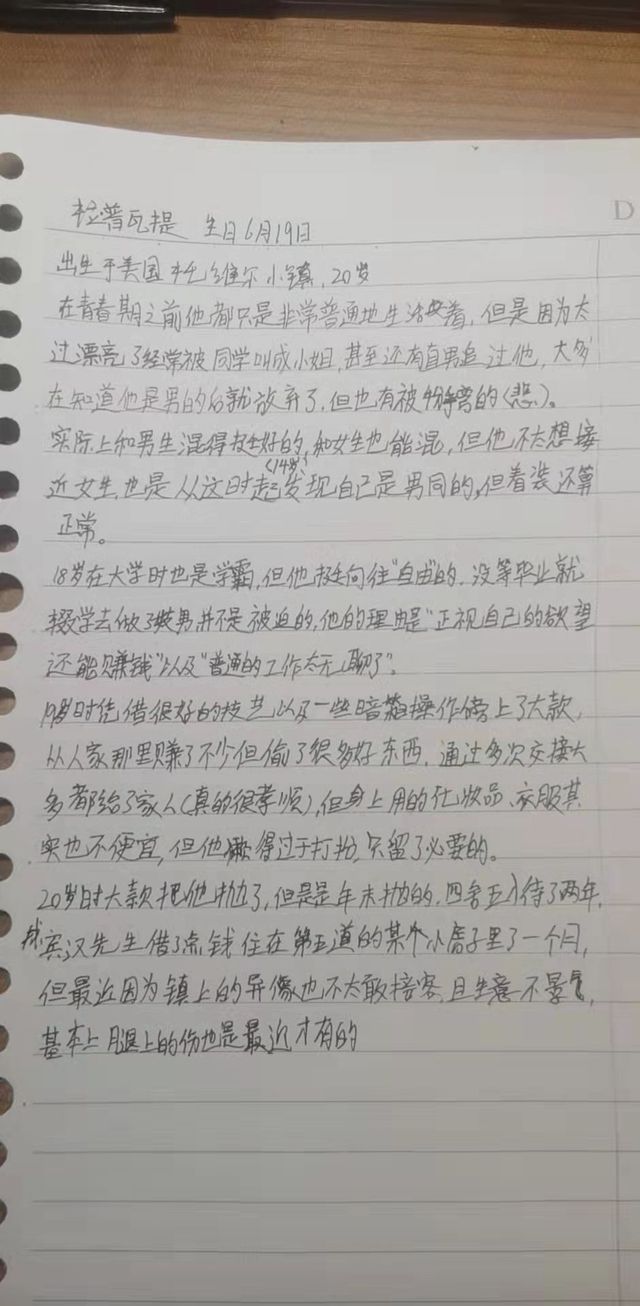 拉普瓦提 生日6月19日
D
出生于美国托维尔小镇,20岁
在青春期之前他都只是非常普通地生活着,但是因为太
过漂亮了经常被同学叫成小姐,甚至还有直男追过他,大多
在知道他是男的后就放弃了,但也有被掰弯的(悲)。
实际上和男生混得挺好的,和女生也能混,但他不太想接
近女生,也是从这时(14岁)起发现自己是男同的,但着装还算
正常。
18岁在大学时也是学霸,但他挺向往"自由"的,没等毕业就
辍学去做了男并不是被迫的,他的理由是"正视自己的欲望
还能赚钱"以及"普通的工作太无聊了"。
19岁时凭借很好的技艺以及一些暗箱操作傍上了大款,
从人家那里赚了不少但偷了很多好东西,通过多次交接大
多都给了家人(真的很孝顺),但身上用的化妆品、衣服其
实也不便宜,但他懒得过于打扮,只留了必要的。
20岁时大款把他抛了,但是是年末抛的,四舍五入待了两年,
找宾汉先生借了点钱住在第五道的某个小房子里了一个月,
但最近因为镇上的异像也不太敢接客,且生意不景气,
基本上腿上的伤也是最近才有的